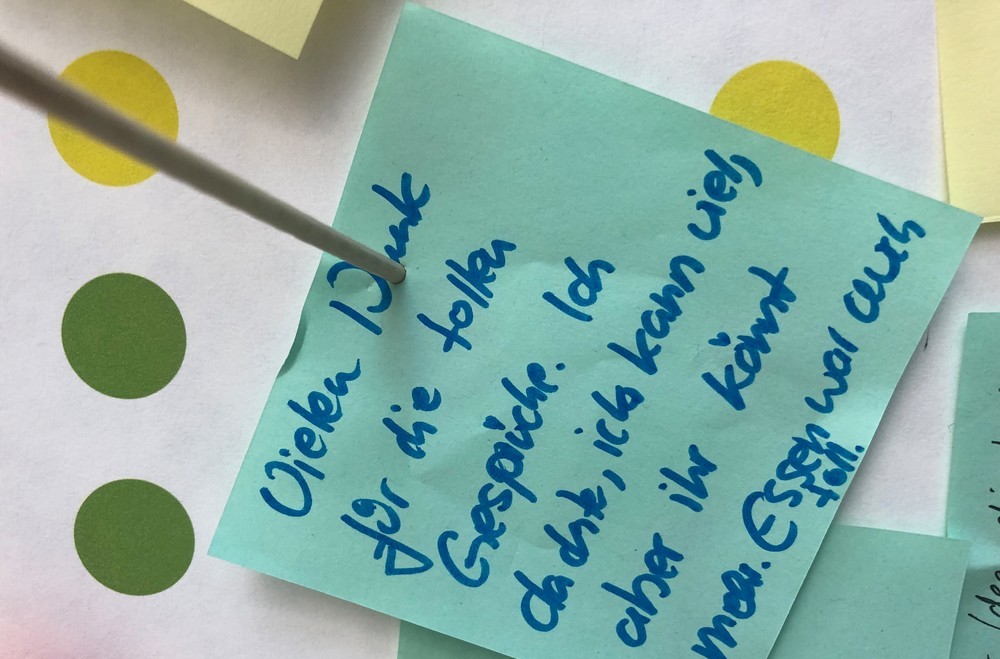 Vielen Dank
für die tollen
Gespräche. Ich
dachte, ich kann viel,
aber ihr könnt
mehr. Essen war auch
toll.